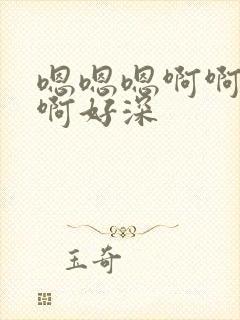 嗯嗯嗯啊啊
啊好深
玉奇